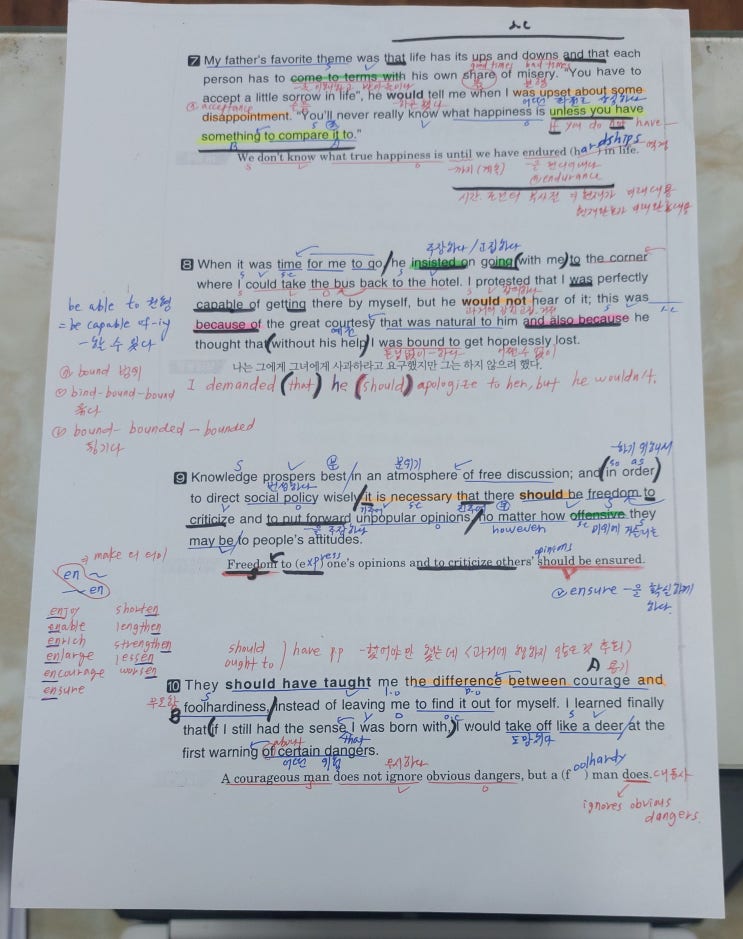 s.c
7 My father's favorite theme was that life has its ups and downs and that each
good times bad times
person has to come to terms with his own share of misery. "You have to
accept a little sorrow in life", he would tell me when I was upset about some
acceptance
disappointment. "You'll never really know what happiness is unless you have
if you do not have
something to compare it to."
We don't know what true happiness is until we have endured (hardships) in life.
endurance
주장하다 / 고집하다
8 When it was time for me to go, he insisted on going with me to the corner
where I could take the bus back to the hotel. I protested that I was perfectly
capable of getting there by myself, but he would not hear of it; this was
because of the great courtesy that was natural to him and also because he
thought that without his help I was bound to get hopelessly lost.
be able to 원형
= be capable of -ing
-할 수 있다
나는 그에게 그녀에게 사과하라고 요구했지만 그는 하지 않으려 했다.
I demanded (that) he (should) apologize to her, but he wouldn't.
bound 범위
bind-bound-bound
묶다
bound-bounded-bounded
튕기다
-하기 위해서
so as
분위기
9 Knowledge prospers best in an atmosphere of free discussion; and in order
번성하다
to direct social policy wisely it is necessary that there should be freedom to
criticize and to put forward unpopular opinions, no matter how offensive they
however
may be to people's attitudes.
Freedom to (express) one's opinions and to criticize others' opinions should be ensured.
ensure -을 확실하게
하다.
make
en ~
~ en
enjoy shorten
enable lengthen
enrich strengthen
enlarge lessen
encourage worsen
ensure
should
ought to ) have pp -했어야만 했는데 <과거에 행하지 않은 것 후회>
A 용기
10 They should have taught me the difference between courage and
무모함
B foolhardiness, instead of leaving me to find it out for myself. I learned finally
that if I still had the sense I was born with, I would take off like a deer at the
도망가다
first warning of certain dangers.
about
어떤 위험
무시하다
A courageous man does not ignore obvious dangers, but a (foolhardy) man does. 대동사
ignores obvious
dangers.